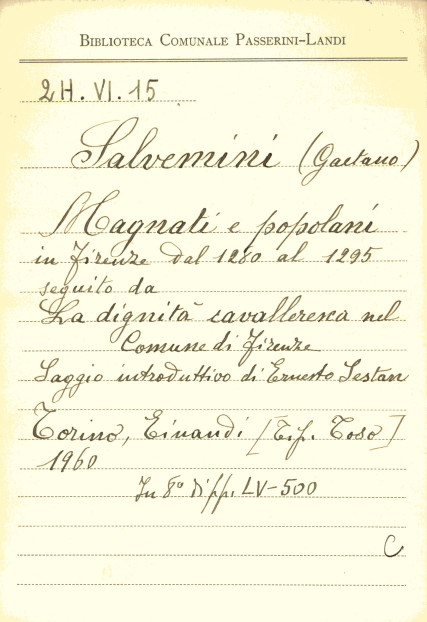 BIBLIOTECA COMUNALE PASSERINI-LANDI
2H. VI. 15
Salvemini (Gaetano)
Magnati e popolani
in Firenze dal 1280 al 1295
seguito da
La dignità cavalleresca nel
Comune di Firenze
Saggio introduttivo di Ernesto Sestan
Torino, Einaudi [Tip. Toso]
1960
In 8° di pp. LV-500
C